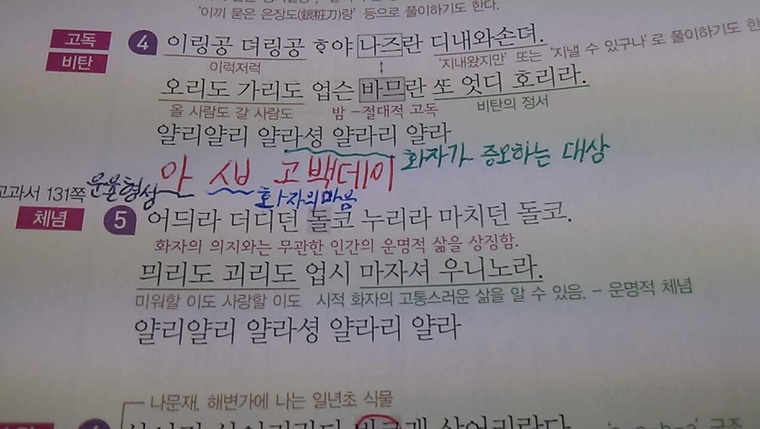 '이끼 묻은 은장도(銀粧刀)랑' 등으로 풀이하기도 한다.
고독
비탄
4 이링공 뎌링공 ᄒᆞ야 나즈란 디내와손뎌.
이럭저럭
'지내왔지만' 또는 '지낼 수 있구나'로 풀이하기도 한
오리도 가리도 업슨 바므란 ᄯᅩ 엇디 호리라.
올 사람도 갈 사람도
밤 - 절대적 고독
비탄의 정서
얄리얄리 얄라셩 얄라리 얄라
아 고백데이 화자가 증오하는 대상
교과서 131쪽
운율형성
화자의마음
체념
5 어듸라 더디던 돌코 누리라 마치던 돌코.
화자의 의지와는 무관한 인간의 운명적 삶을 상징함.
믜리도 괴리도 업시 마자셔 우니노라.
미워할 이도 사랑할 이도
시적 화자의 고통스러운 삶을 알 수 있음. - 운명적 체념
얄리얄리 얄라셩 얄라리 얄라
나문재. 해변가에 나는 일년초 식물